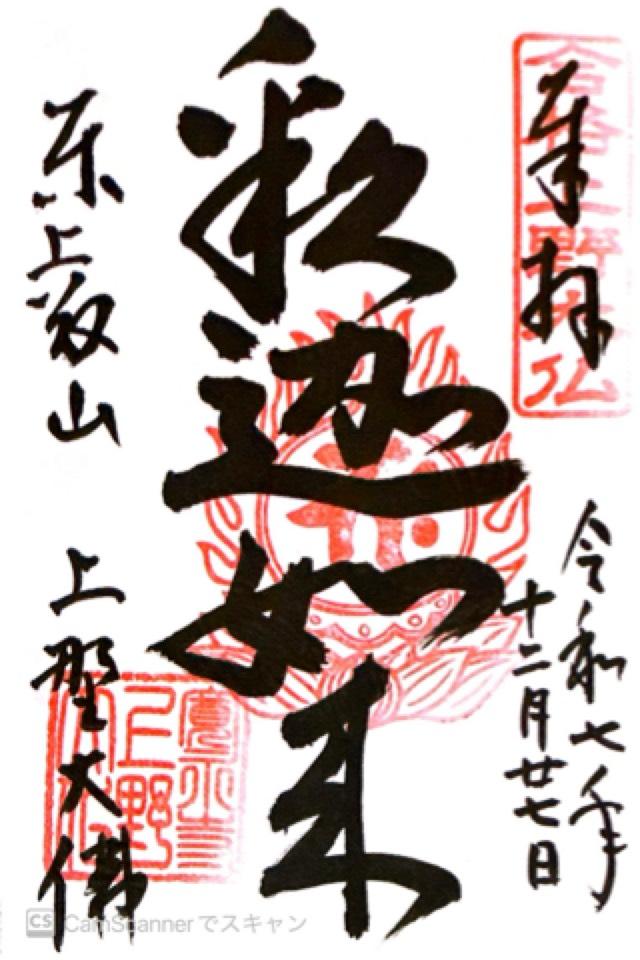 奉拝
合格上野大仏
令和七年
十二月廿七日
釈迦如来
東上叡山
上野大佛
CS CamScannerでスキャン